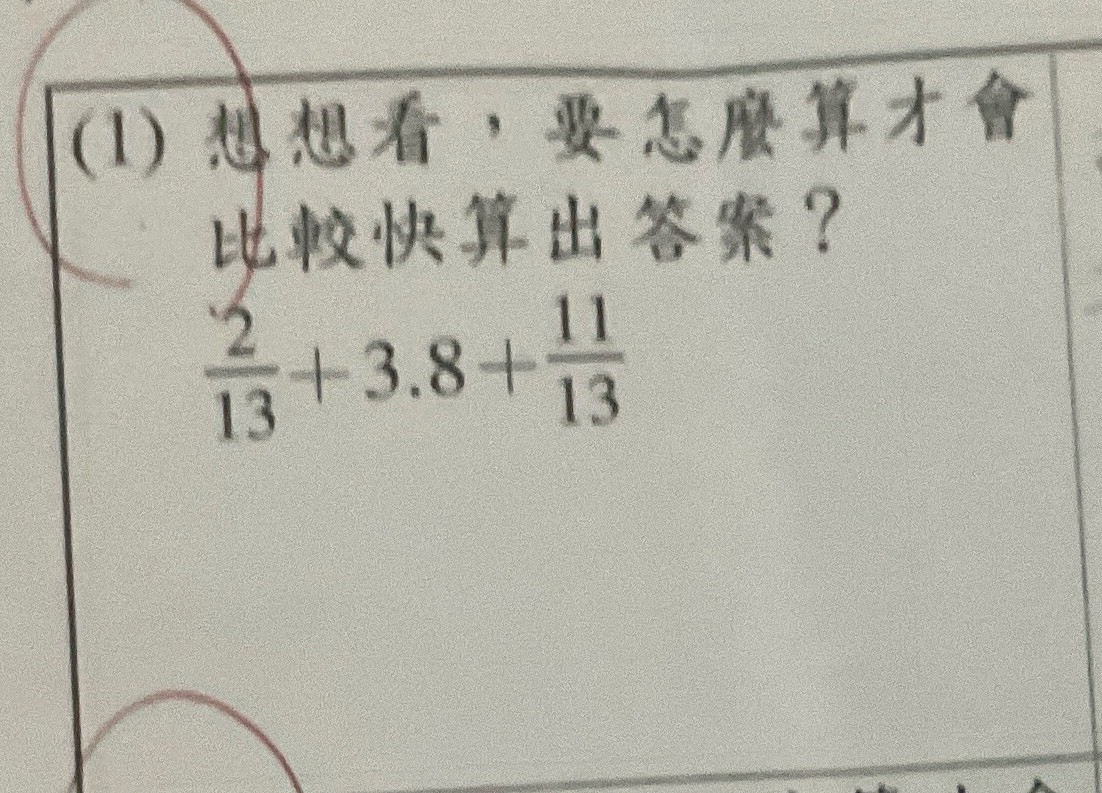 (1) 想想看，要怎麼算才會
比較快算出答案？
2/13＋3.8＋11/13